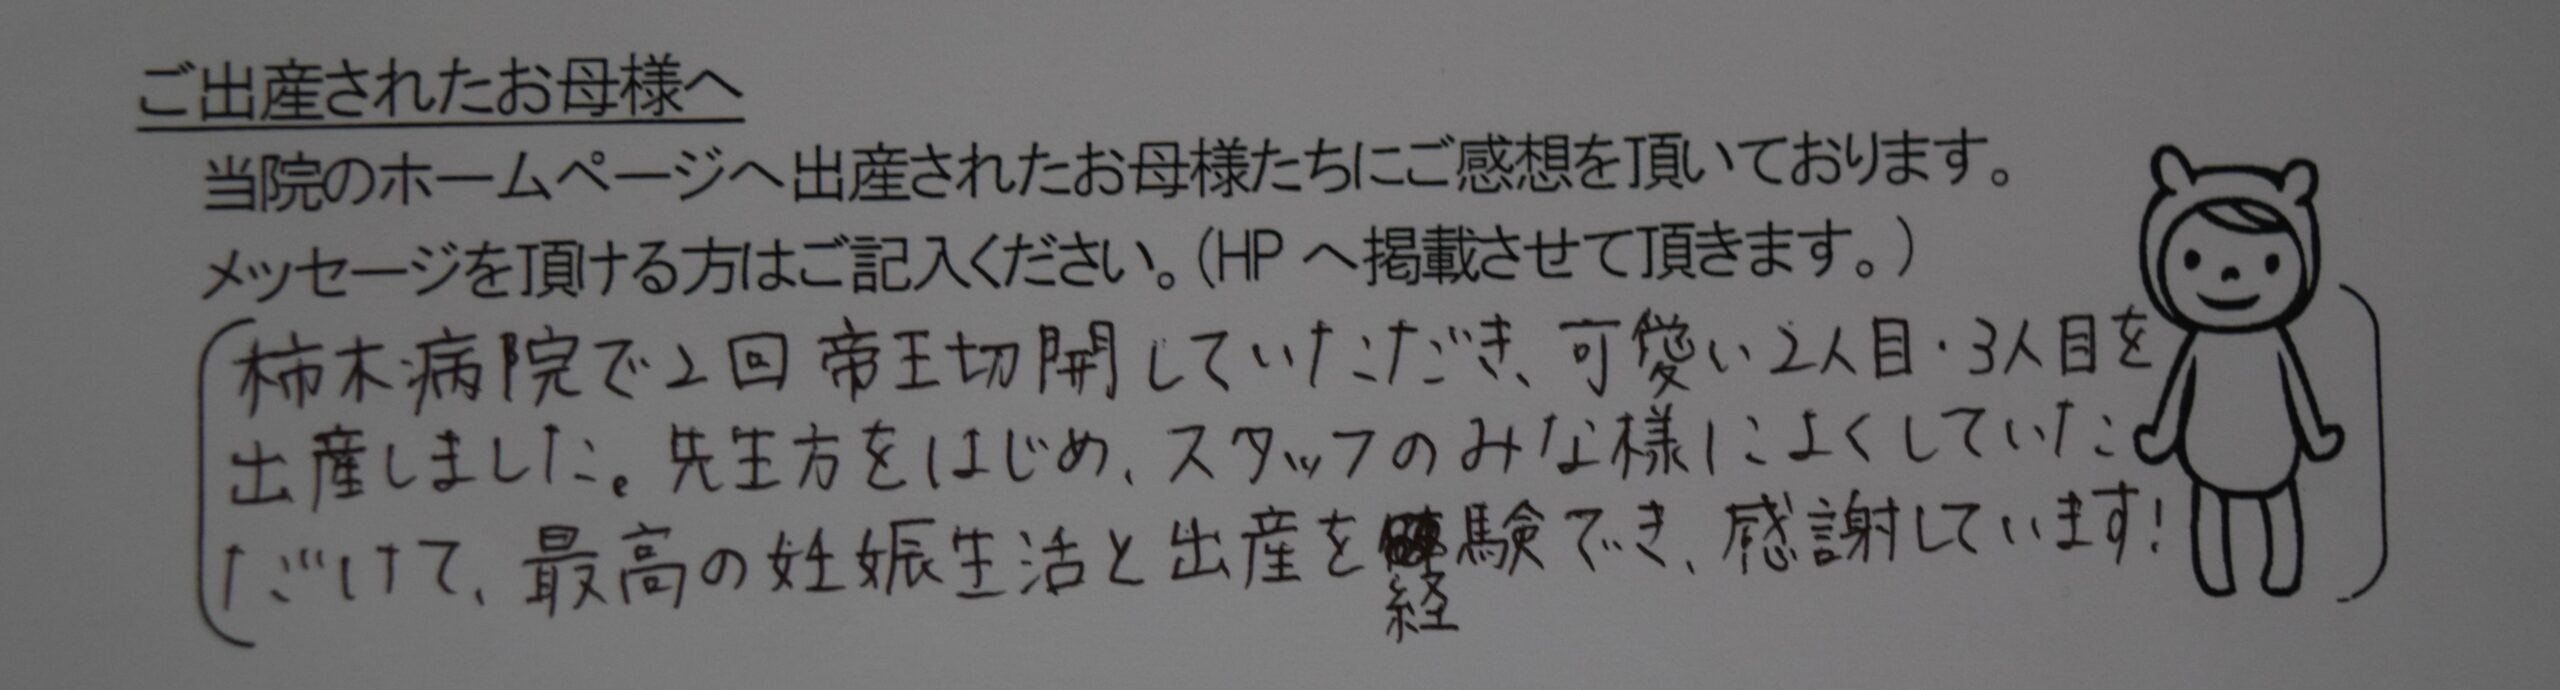 ご出産されたお母様へ
当院のホームページへ出産されたお母様たちにご感想を頂いております。
メッセージを頂ける方はご記入ください。(HP へ掲載させて頂きます。)
柿木病院で2回帝王切開していただき、可愛い2人目・3人目を
出産しました。先生方をはじめ、スタッフのみな様によくしていた
だけて、最高の妊娠生活と出産を経験でき、感謝しています!